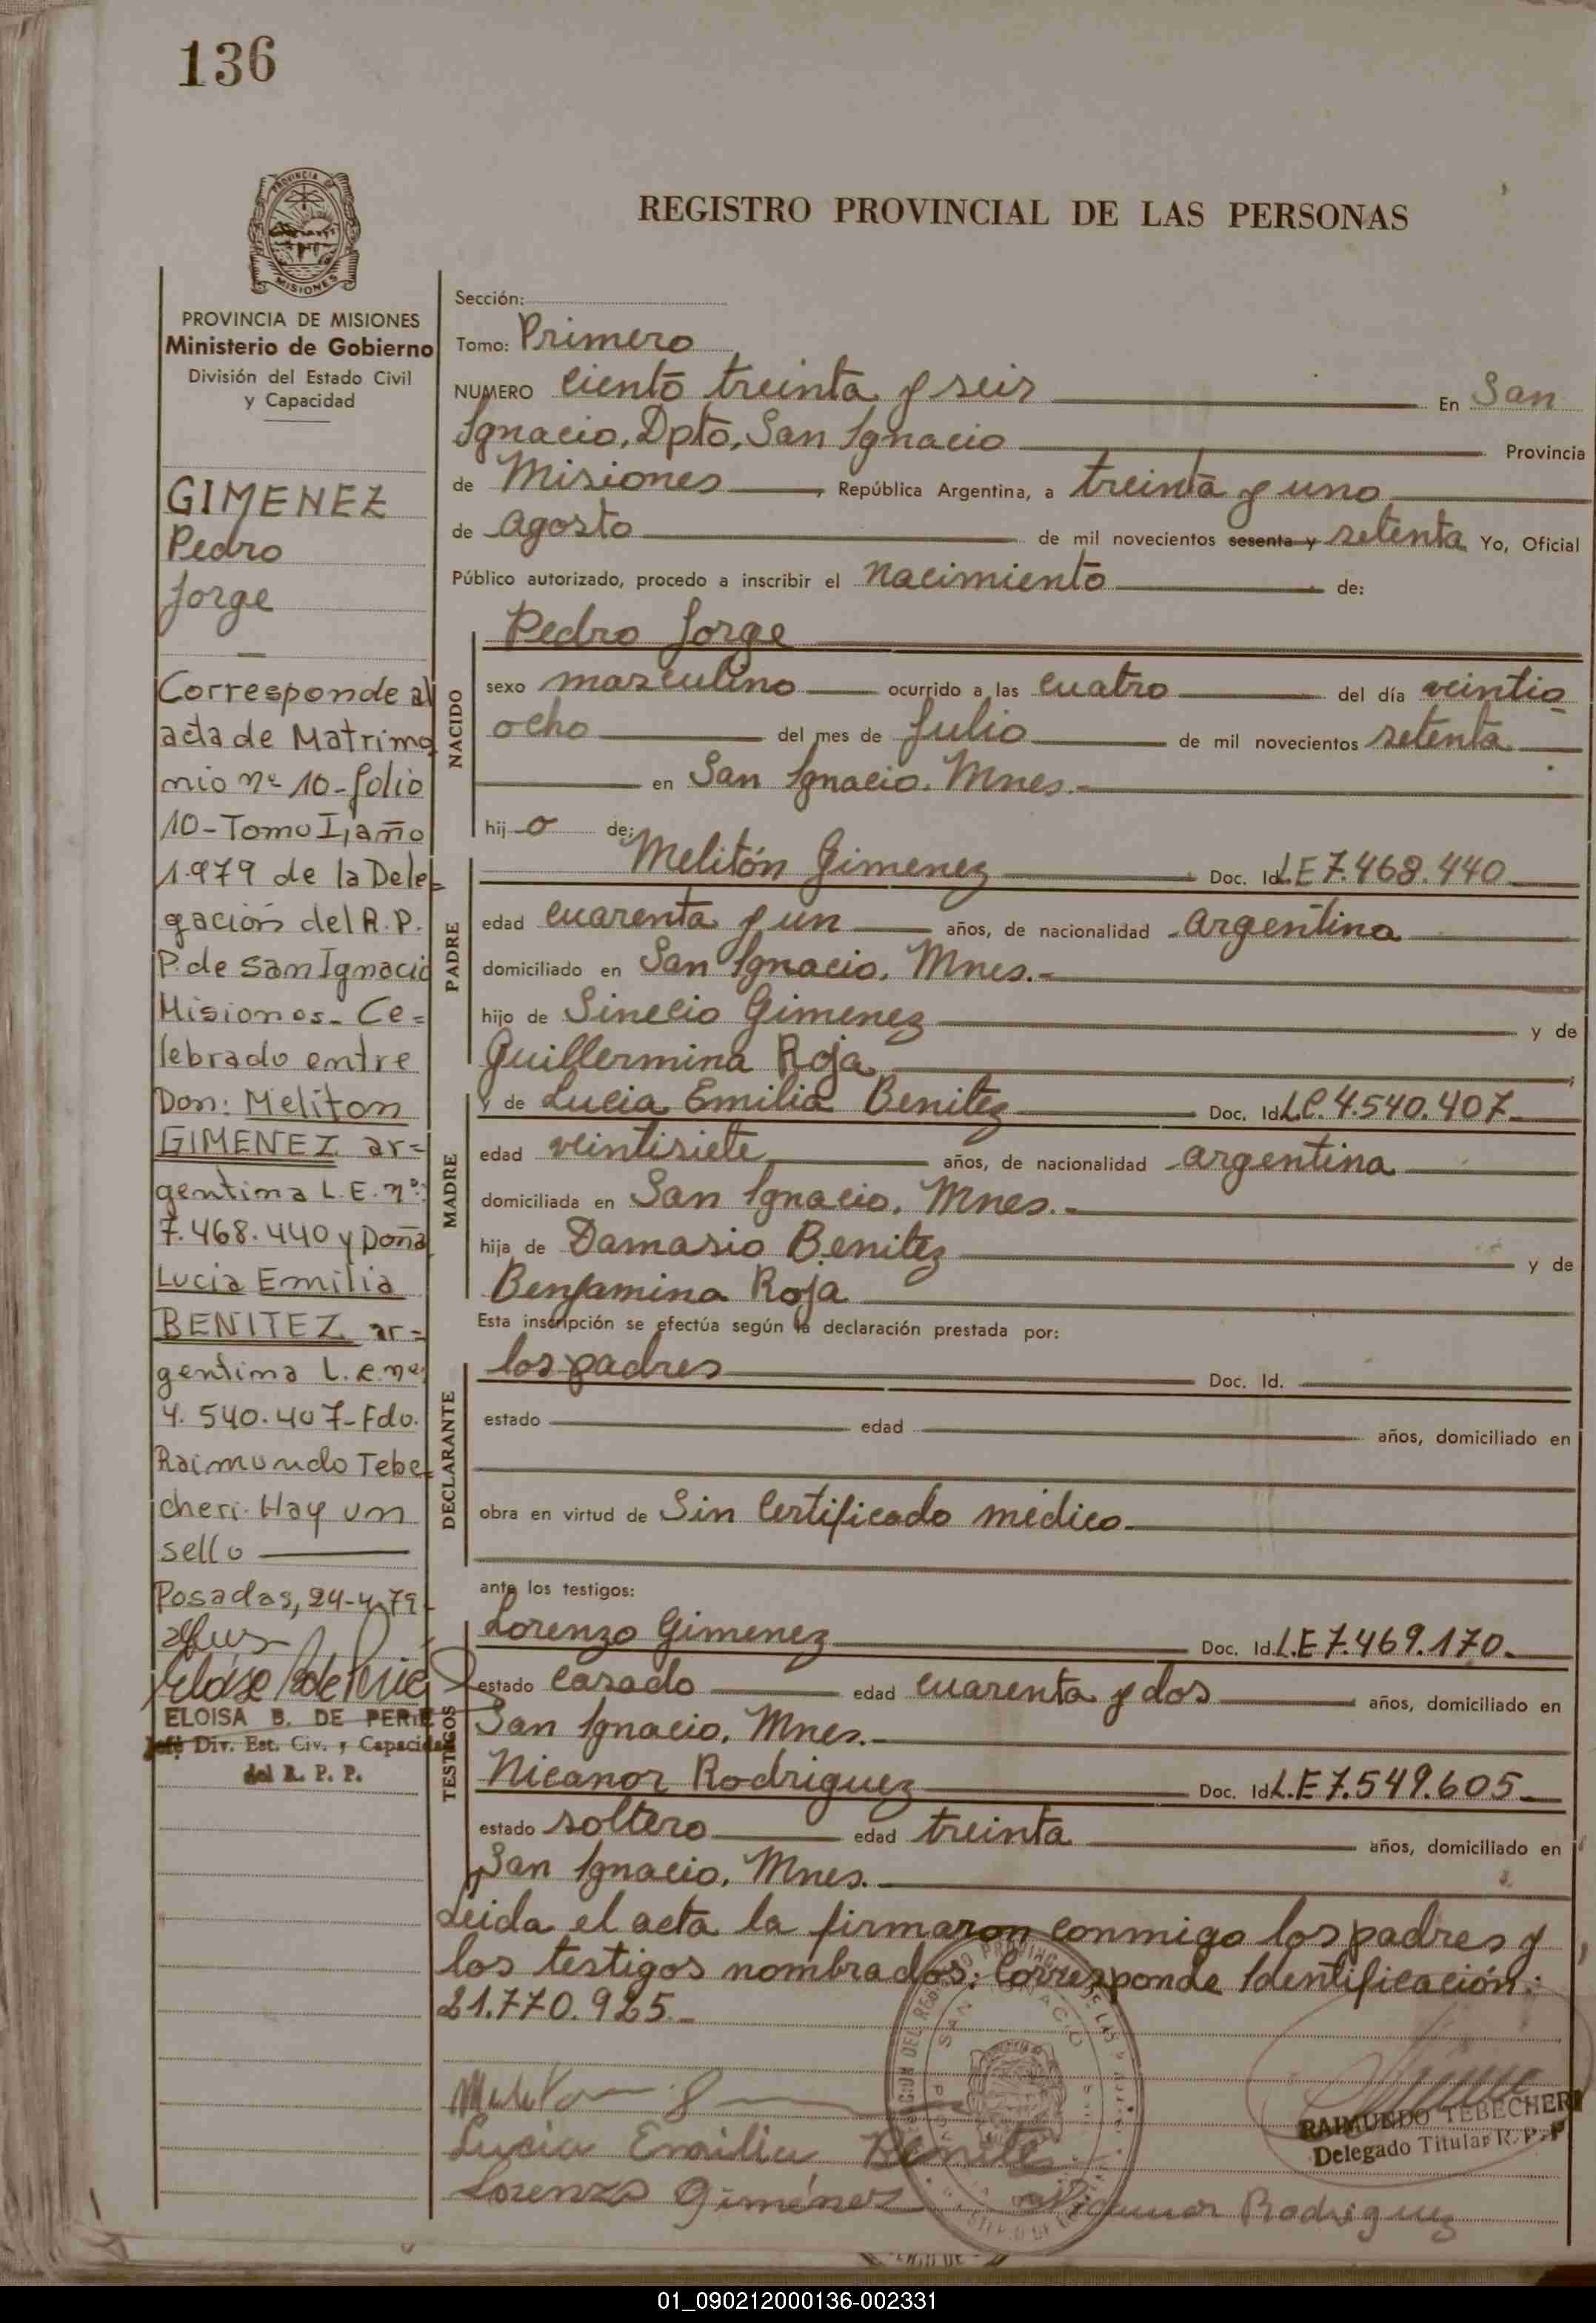 136
PROVINCIA DE
MISIONES
REGISTRO PROVINCIAL DE LAS PERSONAS
PROVINCIA DE MISIONES
Ministerio de Gobierno
División del Estado Civil
y Capacidad
GIMENEZ
Pedro
Jorge
Corresponde al
acta de Matrimo
nio nº 10-folio
10-Tomo I, año
1.979 de la Dele-
gación del R.P.
P. de San Ignacio
Misiones- Ce=
lebrado entre
Don: Meliton
GIMENEZ ar=
gentina L.E. nº:
7.468.440 y Doña
Lucia Emilia
BENITEZ ar=
gentina L.C. nº
4.540.407-Fdo.
Raimundo Tebe-
cheri. Hay un
sello
Posadas, 24-4-79-
ELOISA B. DE PERIE
Jefe Div. Est. Civ. y Capacidad
del R. P. P.
Sección:
Tomo: Primero
NUMERO Ciento treinta y seis En San
Ignacio, Dpto, San Ignacio Provincia
de Misiones, República Argentina, a treinta y uno
de agosto de mil novecientos sesenta y setenta Yo, Oficial
Público autorizado, procedo a inscribir el nacimiento de:
NACIDO
Pedro Jorge
sexo masculino ocurrido a las cuatro del día veintio
ocho del mes de Julio de mil novecientos setenta
en San Ignacio. Mnes.-
hij o de:
PADRE
Melitón Gimenez Doc. Id. LE 7.468.440
edad cuarenta y un años, de nacionalidad argentina
domiciliado en San Ignacio. Mnes.-
hijo de Sinecio Gimenez y de
Guillermina Roja
MADRE
y de Lucia Emilia Benitez Doc. Id. L.C. 4.540.407
edad veintisiete años, de nacionalidad argentina
domiciliada en San Ignacio. Mnes.-
hija de Damasio Benitez y de
Benjamina Roja
Esta inscripción se efectúa según la declaración prestada por:
DECLARANTE
los padres Doc. Id.
estado edad años, domiciliado en
obra en virtud de Sin Certificado médico.
ante los testigos:
TESTIGOS
Lorenzo Gimenez Doc. Id. L.E 7.469.170.
estado casado edad cuarenta y dos años, domiciliado en
San Ignacio, Mnes.-
Nicanor Rodriguez Doc. Id. L.E 7.549.605
estado soltero edad treinta años, domiciliado en
San Ignacio, Mnes.
Leida el acta la firmaron conmigo los padres y
los testigos nombrados: Corresponde Identificación:
21.770.925.-
SAN IGNACIO
RAIMUNDO TEBECHERI
Delegado Titular R.P.P
Lucia Emilia Benitez
Lorenzo Giménez Nicanor Rodriguez
01_090212000136-002331